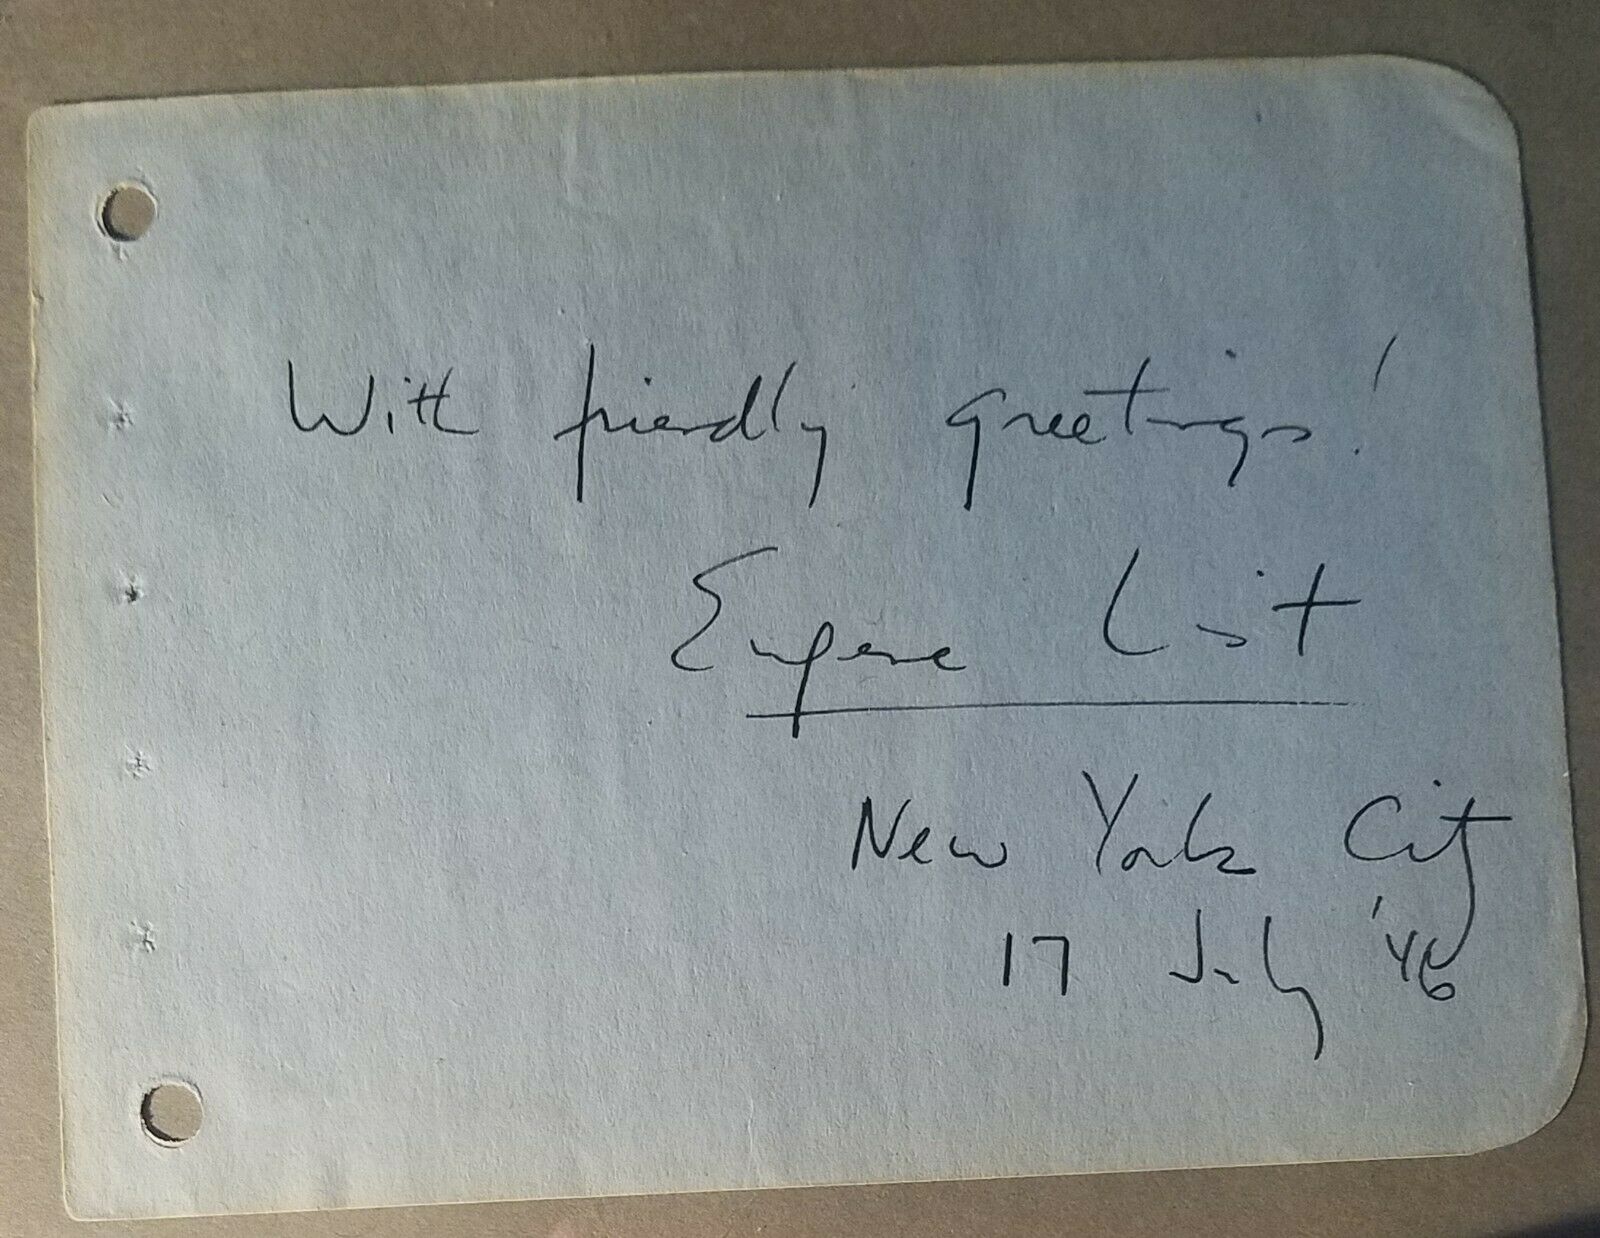 With friendly greetings!
Eugene List
New York City
17 July '46